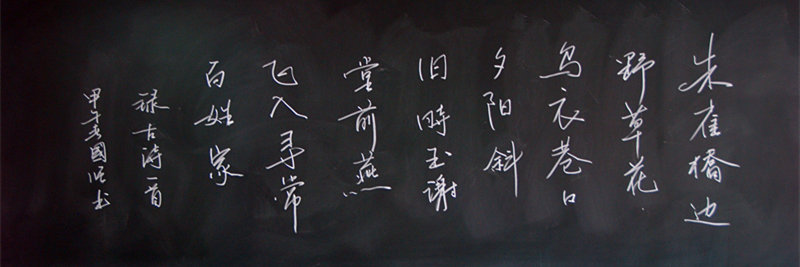 朱雀橋边
野草花
乌衣巷口
夕阳斜
旧時王謝
堂前燕
飞入寻常
百姓家
録古詩一首
甲午春國书